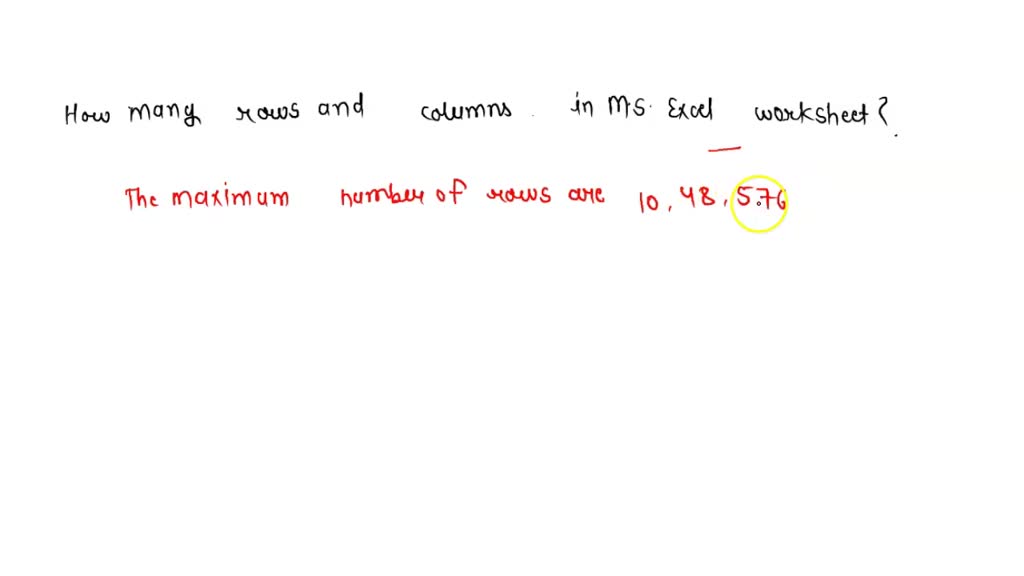 How many rows and columns in MS. Excel worksheet?
The maximum number of rows are 10,48,576